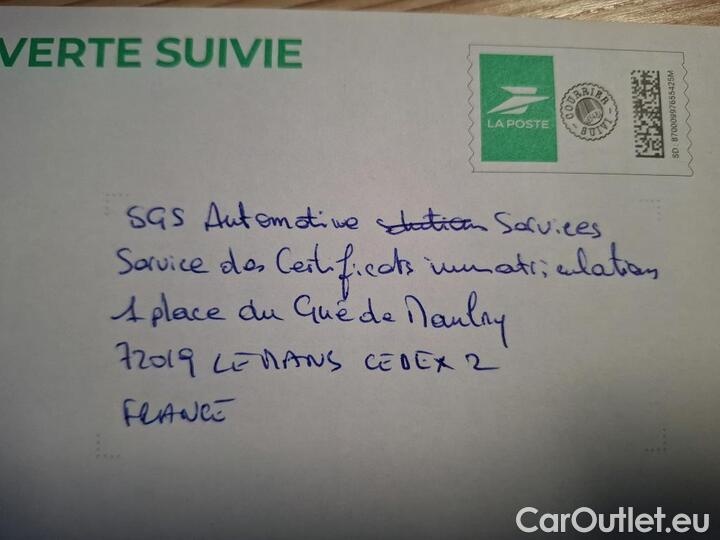 VERTE SUIVIE
LA POSTE
COURRIER
SUIVI
SD : 87000997655425M
SGS Automotive solution Services
Service des Certificats immatriculation
1 place du Gué de Maulny
72019 LE MANS CEDEX 2
FRANCE
CarOutlet.eu